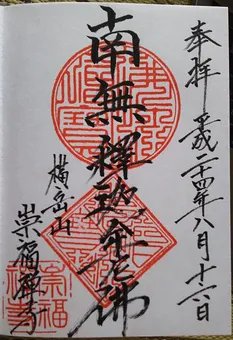 奉拝 平成二十四年八月十六日
南無釋迦牟尼佛
横岳山
崇福禅寺
崇福